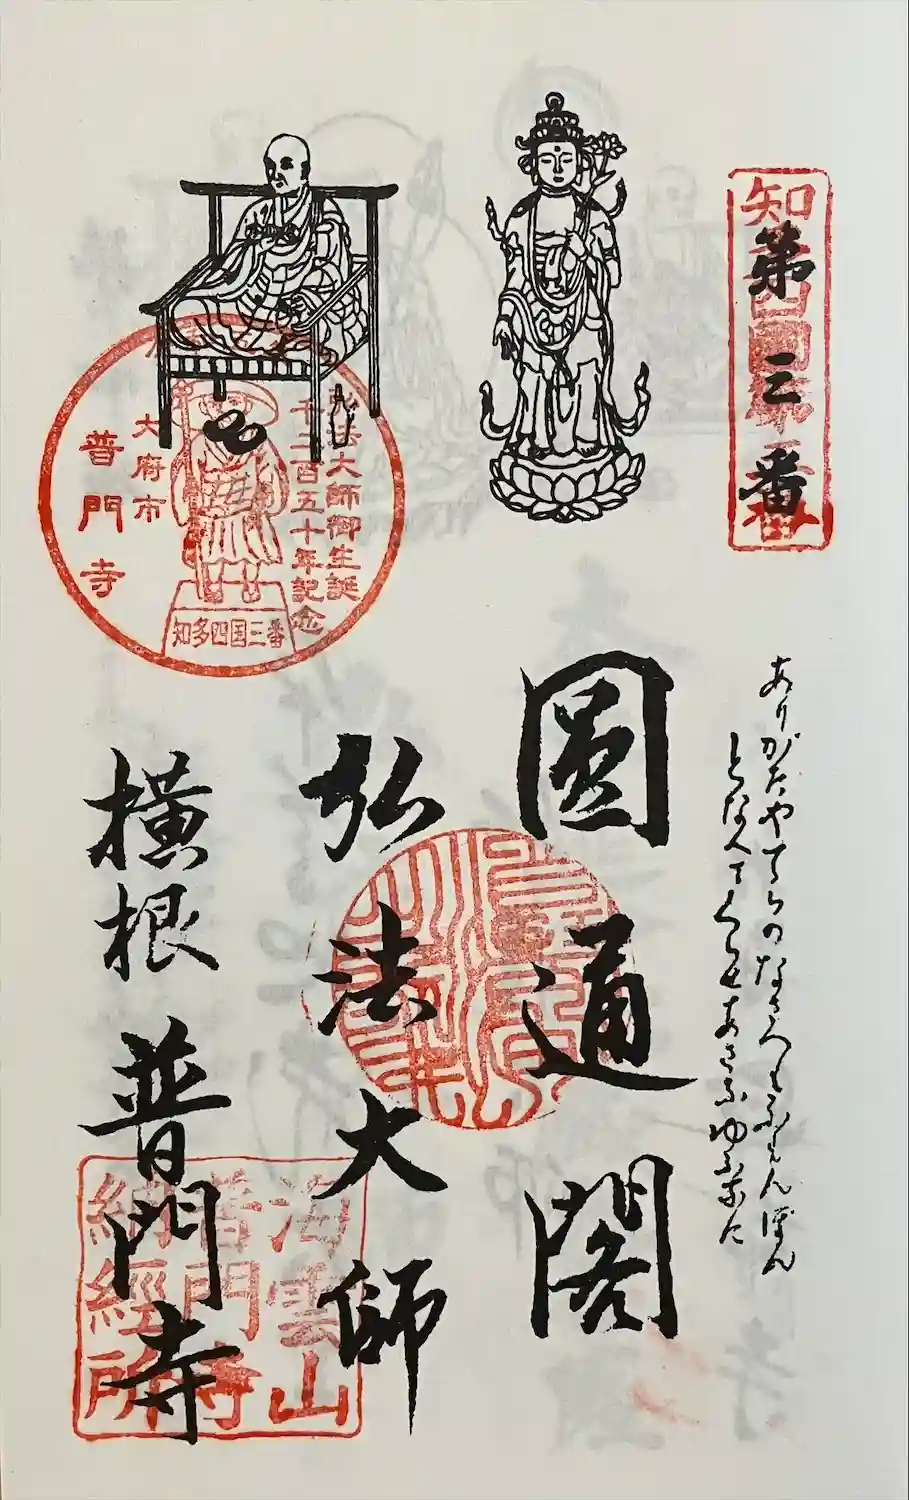 第三番
ありがたやてらのなさへもふもんぼん
となへてくらせあさふゆふなに
圓通閣
弘法大師
横根 普門寺
弘法大師御生誕
千二百五十年記念
大府市
普門寺
知多四国三番
海雲山
普門寺
納經所